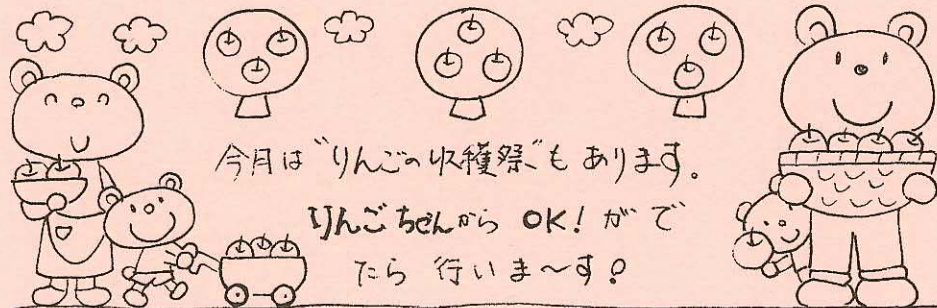 今月は“りんごの収穫祭”もあります。
りんごちゃんから OK! がで
たら 行いま〜す?